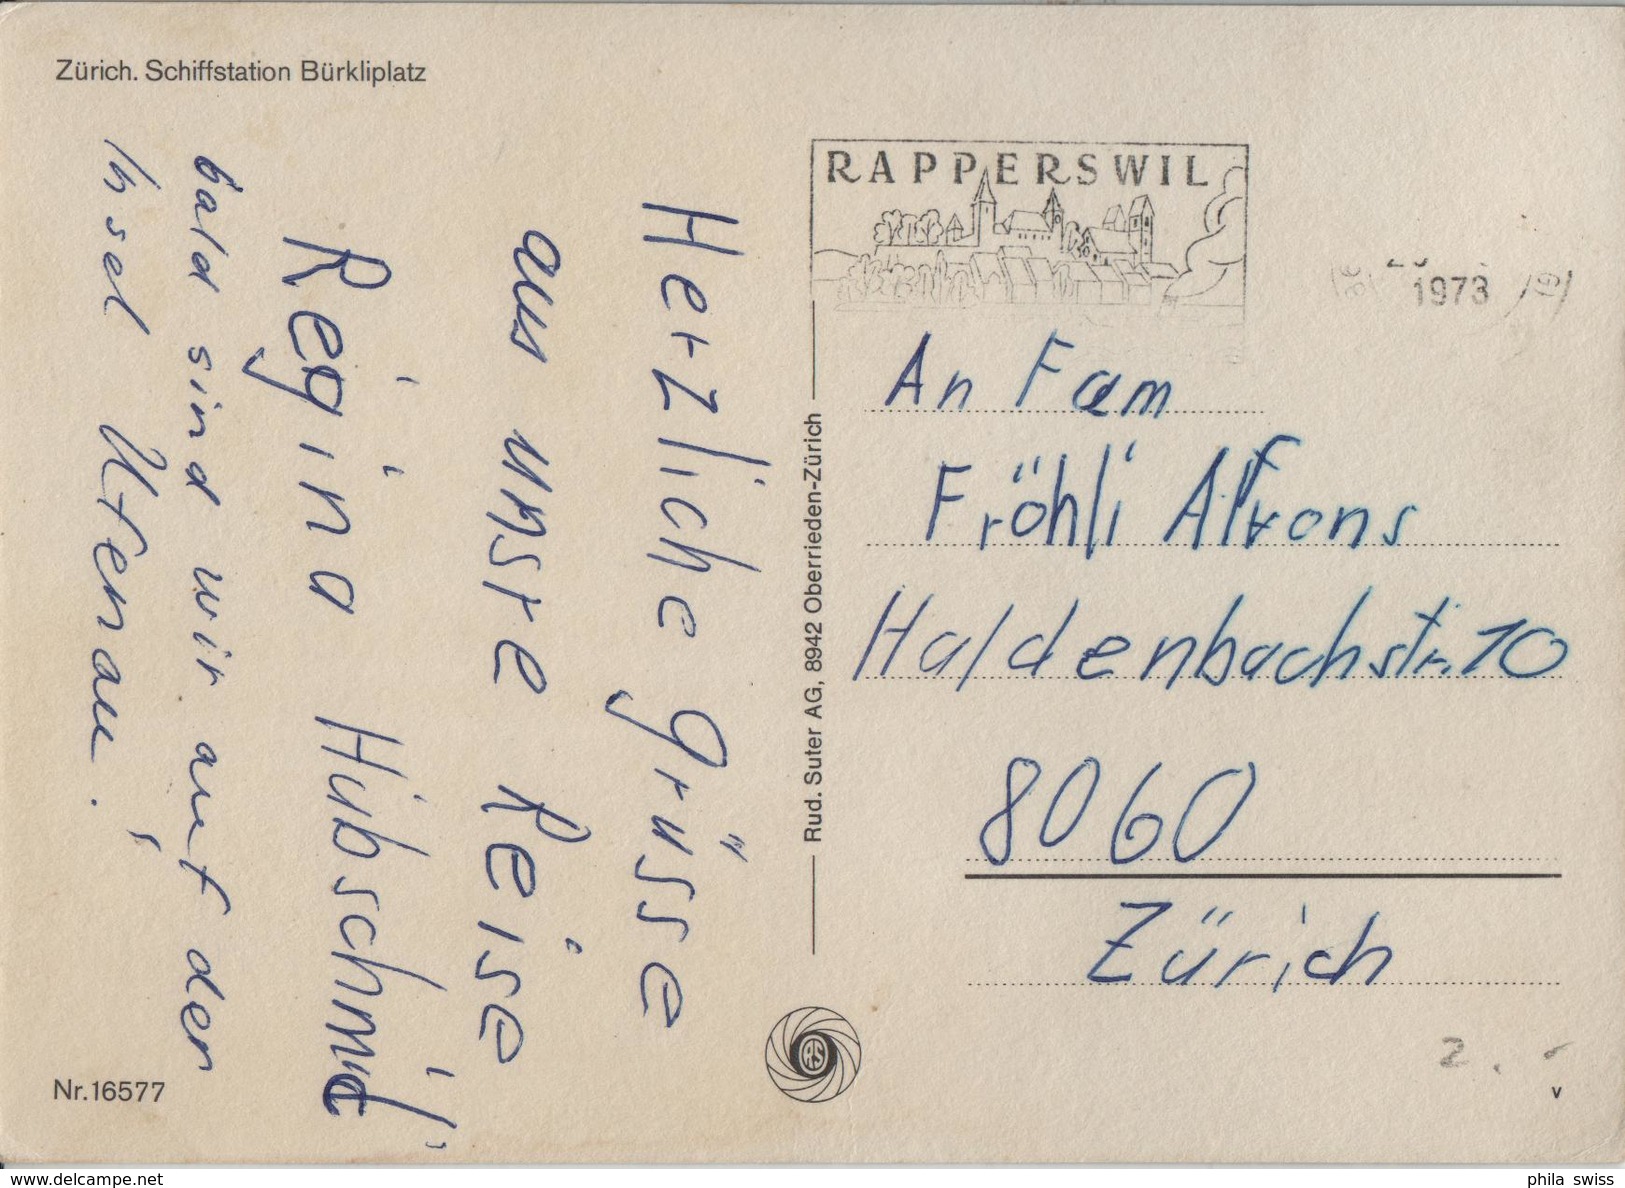 Zürich. Schiffstation Bürkliplatz
Herzliche grüsse
aus unsre Reise
Regina Hubschmid
bald sind wir auf der
Insel Ufenau.
Nr. 16577
Rud. Suter AG, 8942 Oberrieden-Zürich
RS
RAPPERSWIL
1973
An Fam
Fröhli Alfons
Haldenbachstr. 10
8060
Zürich
2.-
v
www.delcampe.net
phila swiss